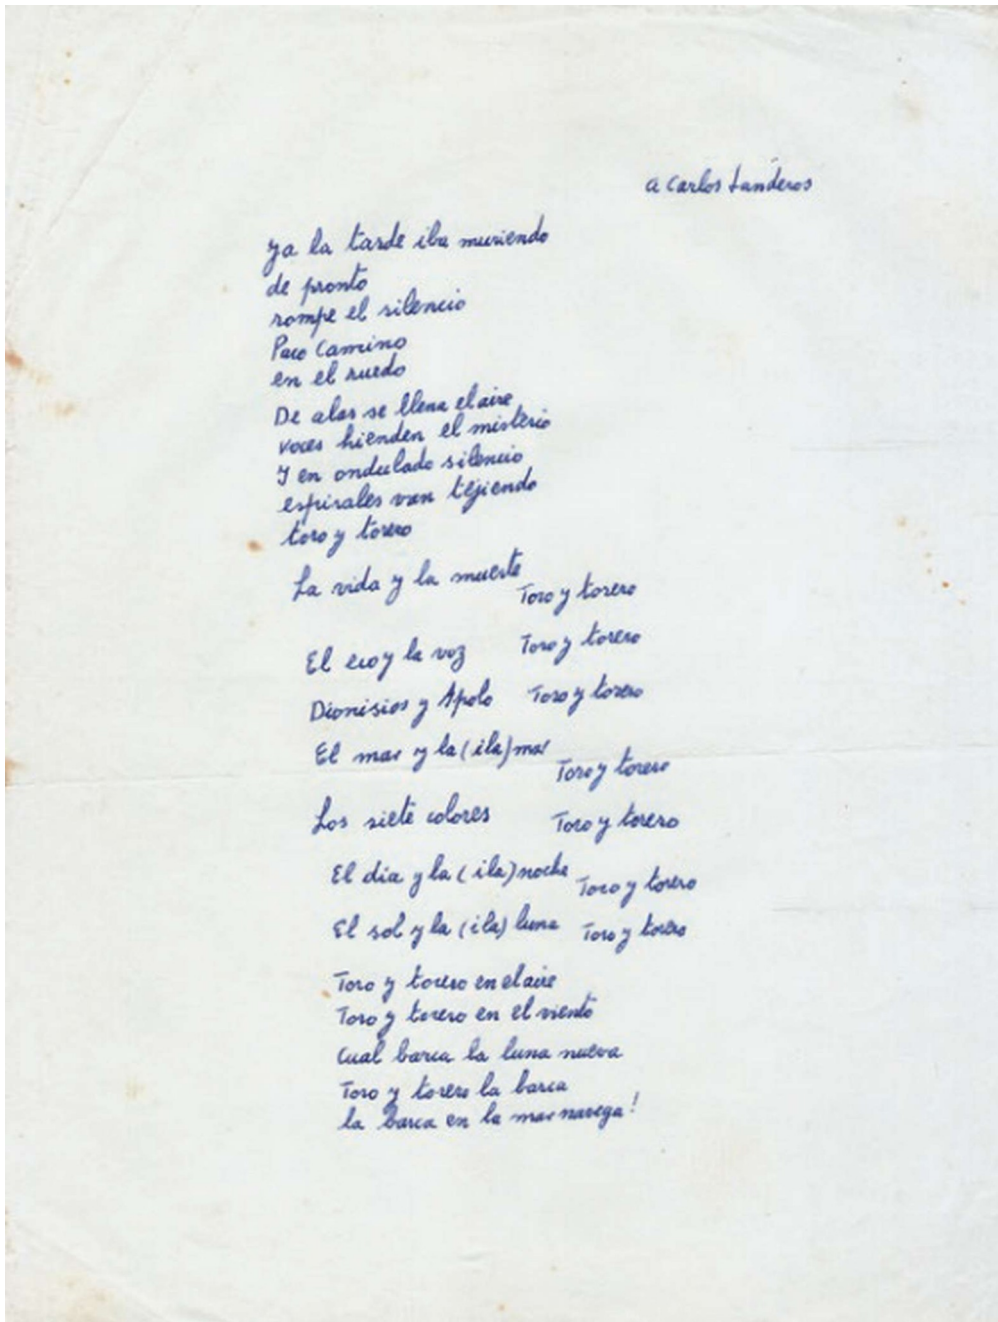 a Carlos Landeros
Ya la tarde iba muriendo
de pronto
rompe el silencio
Paco Camino
en el ruedo
De alas se llena el aire
voces hienden el misterio
Y en ondulado silencio
espirales van tejiendo
toro y torero
La vida y la muerte Toro y torero
El eco y la voz Toro y torero
Dionisios y Apolo Toro y torero
El mar y la (ila) mar Toro y torero
Los siete colores Toro y torero
El dia y la (ila) noche Toro y torero
El sol y la (ila) luna Toro y torero
Toro y torero en el aire
Toro y torero en el viento
Cual barca la luna nueva
Toro y torero la barca
la barca en la mar navega!